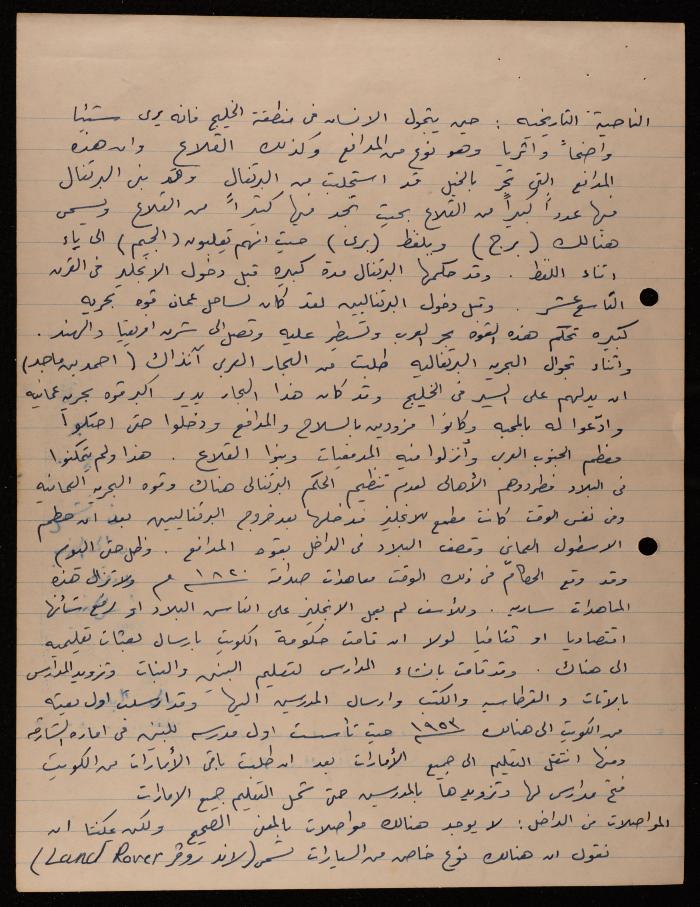 الناحية التاريخيه : حين يتجول الانسان فى منطقة الخليج فانه يرى شيئا
واضحاً واثريا وهو نوع من المدافع وكذلك القلاع وان هذه
المدافع التي تجر بالخيل قد استجلبت من البرتغال وقد بنى البرتغال
فيها عدداً كبيراً من القلاع بحيث تجد فيها كثيراً من القلاع ويسمى
هنالك (برج) ويلفظ (برى) حيث انهم يقلبون (الجيم) الى ياء
اثناء اللفظ . وقد حكمها البرتغال مدة كبيره قبل دخول الانجليز فى القرن
التاسع عشر . وقبل دخول البرتغاليين لقد كان لساحل عمان قوه بحريه
كبيره تحكم هذه القوه بحر العرب وتسيطر عليه وتصل الى شرق افريقيا والهند .
واثناء تجوال البحريه البرتغاليه طلبت من البحار العربى آنذاك (احمد بن ماجد)
ان يدلهم على السير فى الخليج وقد كان هذا البحار يدير اكبر قوه بحريه عمانيه
وادّعوا له بالمحبه وكانوا مزودين بالسلاح والمدافع ودخلوا حتى احتلوا
معظم الجنوب العربى وأنزلوا فيه المدفعيات وبنوا القلاع . هذا ولم يتمكنوا
فى البلاد فطردوهم الأهالى لعدم تنظيم الحكم البرتغالى هناك وقوه البحريه العمانيه
وفى نفس الوقت كانت مطمع للانجليز فدخلها بعد خروج البرتغاليين بعد ان حطم
الاسطول العمانى وقصف البلاد فى الداخل بقوه المدافع . وظل حتى اليوم
وقد وقع الحكام فى ذلك الوقت معاهدات صداقة ١٨٢٠ م ولا تزال هذه
المعاهدات ساريه . وللأسف لم يعمل الانجليز على الناس البلاد او رفع شأنها
اقتصاديا او ثقافيا لولا ان قامت حكومة الكويت بارسال بعثات تعليميه
الى هناك . وقد قامت بانشاء المدارس لتعليم البنين والبنات وتزويد المدارس
بالاثاث و القرطاسيه والكتب وارسال المدرسين اليها وقد ارسلت اول بعثه
من الكويت الى هنالك ١٩٥٣ حيث تأسست اول مدرسه للبنين فى اماره الشارقه
ومنها انتقل التعليم الى جميع الأمارات بعد ان طلبت باقى الأمارات من الكويت
فتح مدارس لها وتزويدها بالمدرسين حتى شمل التعليم جميع الامارات
المواصلات فى الداخل : لا يوجد هنالك مواصلات بالمعنى الصحيح ولكن يمكننا ان
نقول ان هنالك نوع خاص من السيارات تسمى (لاند روڤر Land Rover)